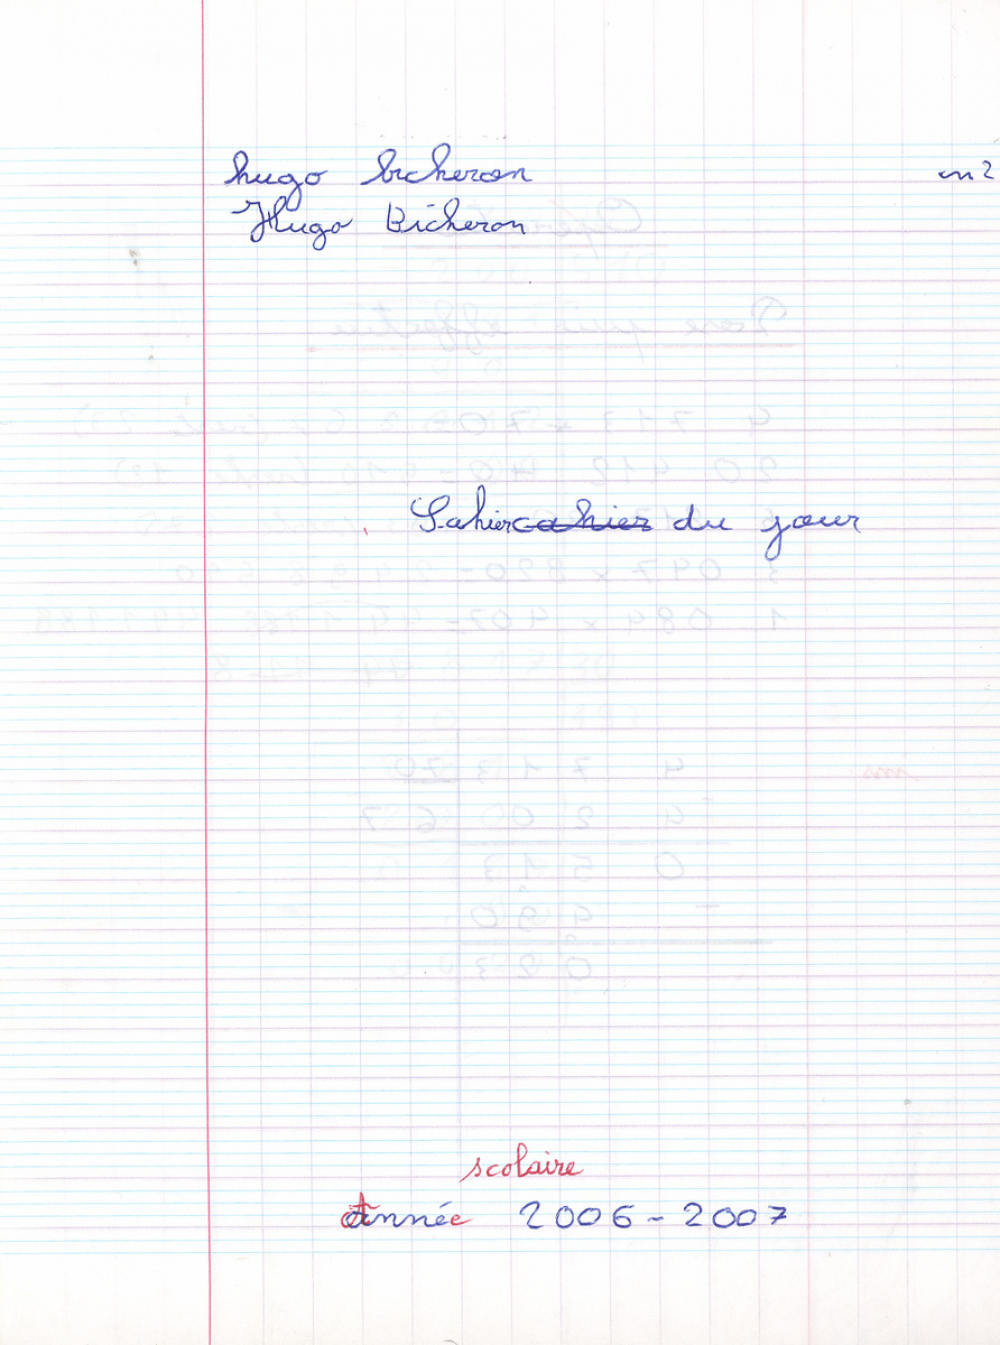 hugo bicheron cm2
Hugo Bicheron
Cahier cahier du jour
scolaire
Année 2006-2007